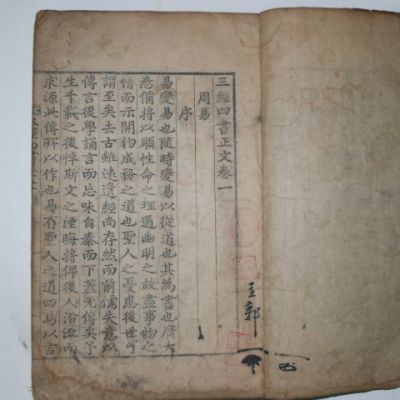 三經四書正文卷一
周易
序
易變易也隨時變易以從道也其爲書也廣大
悉備將以順性命之理通幽明之故盡事物之
情而示開物成務之道也聖人之憂患後世可
謂至矣去古雖遠遺經尚存然而前儒失意以
傳言後學誦言而忘味自秦而下蓋无傳矣予
生千載之後悼斯文之湮晦將俾後人沿流而
求源此傳所以作也易有聖人之道四焉以言